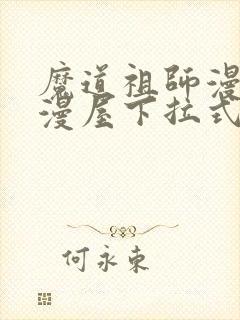 魔道祖師漫
漫屋下拉式
何永東